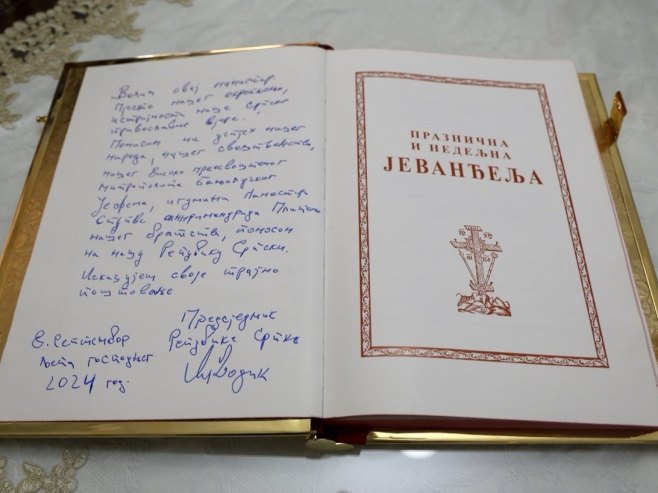 Волим овај манастир
Мјесто нашег окупљања,
истрајности наше Српске
православне вјере.
Поносан на успјех нашег
народа, нашег свештенства,
нашег високо преосвештеног
митрополита бањалучког
Јефрема, игумана Манастира
нашег братства, поносан
на нашу Републику Српску.
Исказујем своје трајно
поштовање
Предсједник
Републике Српске
8. Септембар
љета господњег
2024 год.
ПРАЗНИЧНА
И НЕДЕЉНА
ЈЕВАНЂЕЉА